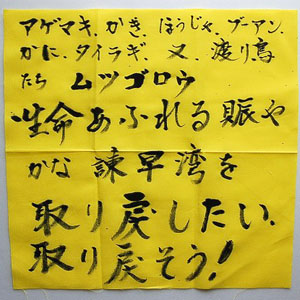 アゲマキ、かき、ほうじゃ、ブーアン、
かに、タイラギ、又、渡り鳥
たち ムツゴロウ
生命あふれる賑や
かな諫早湾を
取り戻したい、
取り戻そう!